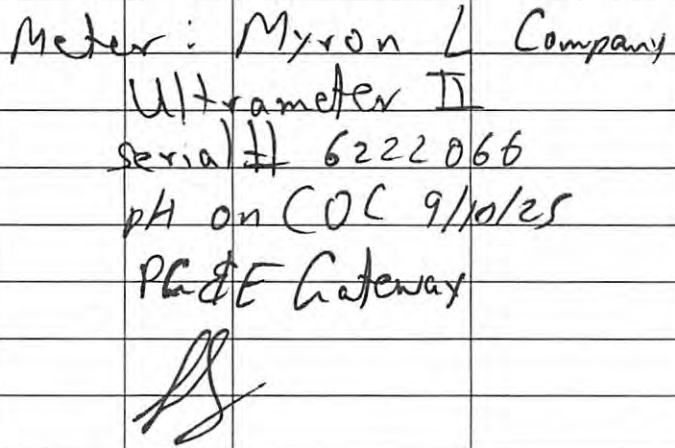 Meter: Myron L Company
Ultrameter II
serial# 6222066
pH on COC 9/10/25
PG&E Gateway